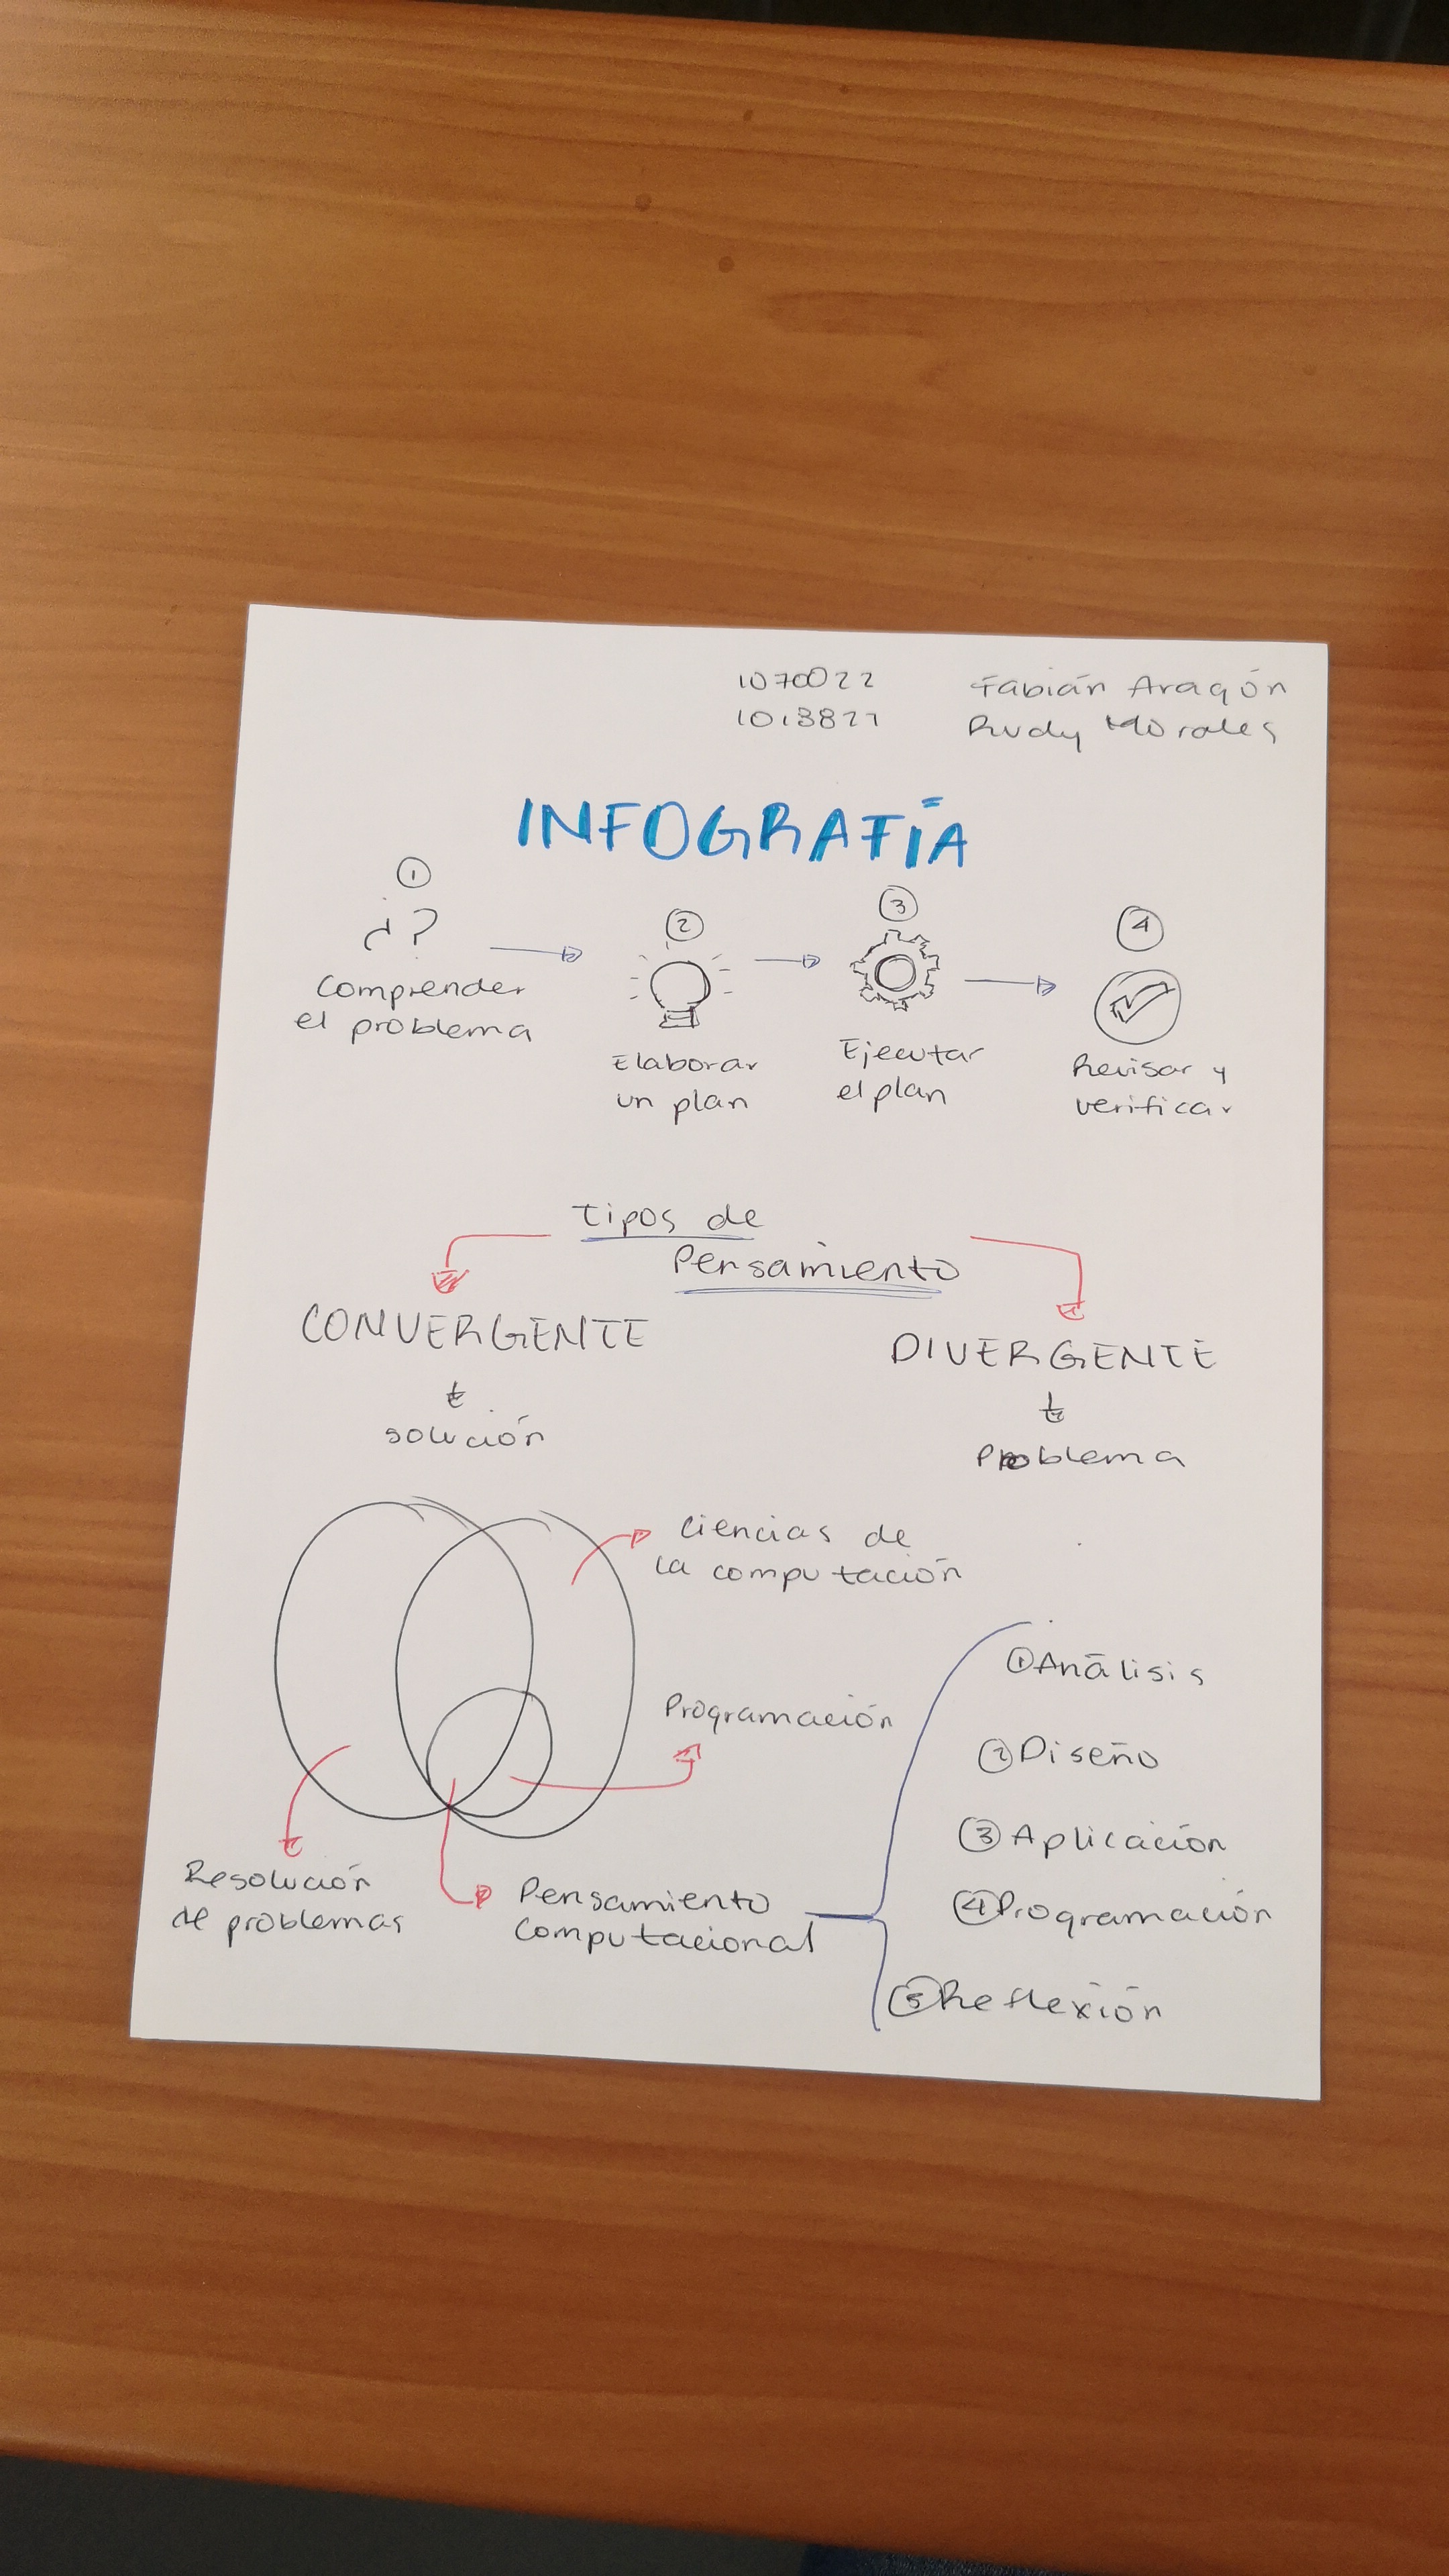 1070022 Fabián Aragón
Rudy Morales
INFOGRAFÍA
①
¿?
Comprender
el problema
②
Elaborar
un plan
③
Ejecutar
el plan
④
Revisar y
verificar
Tipos de
Pensamiento
CONVERGENTE
solución
DIVERGENTE
Problema
Ciencias de
la computación
Programación
Resolución
de problemas
Pensamiento
computacional
① Análisis
② Diseño
③ Aplicación
④ Programación
⑤ Reflexión